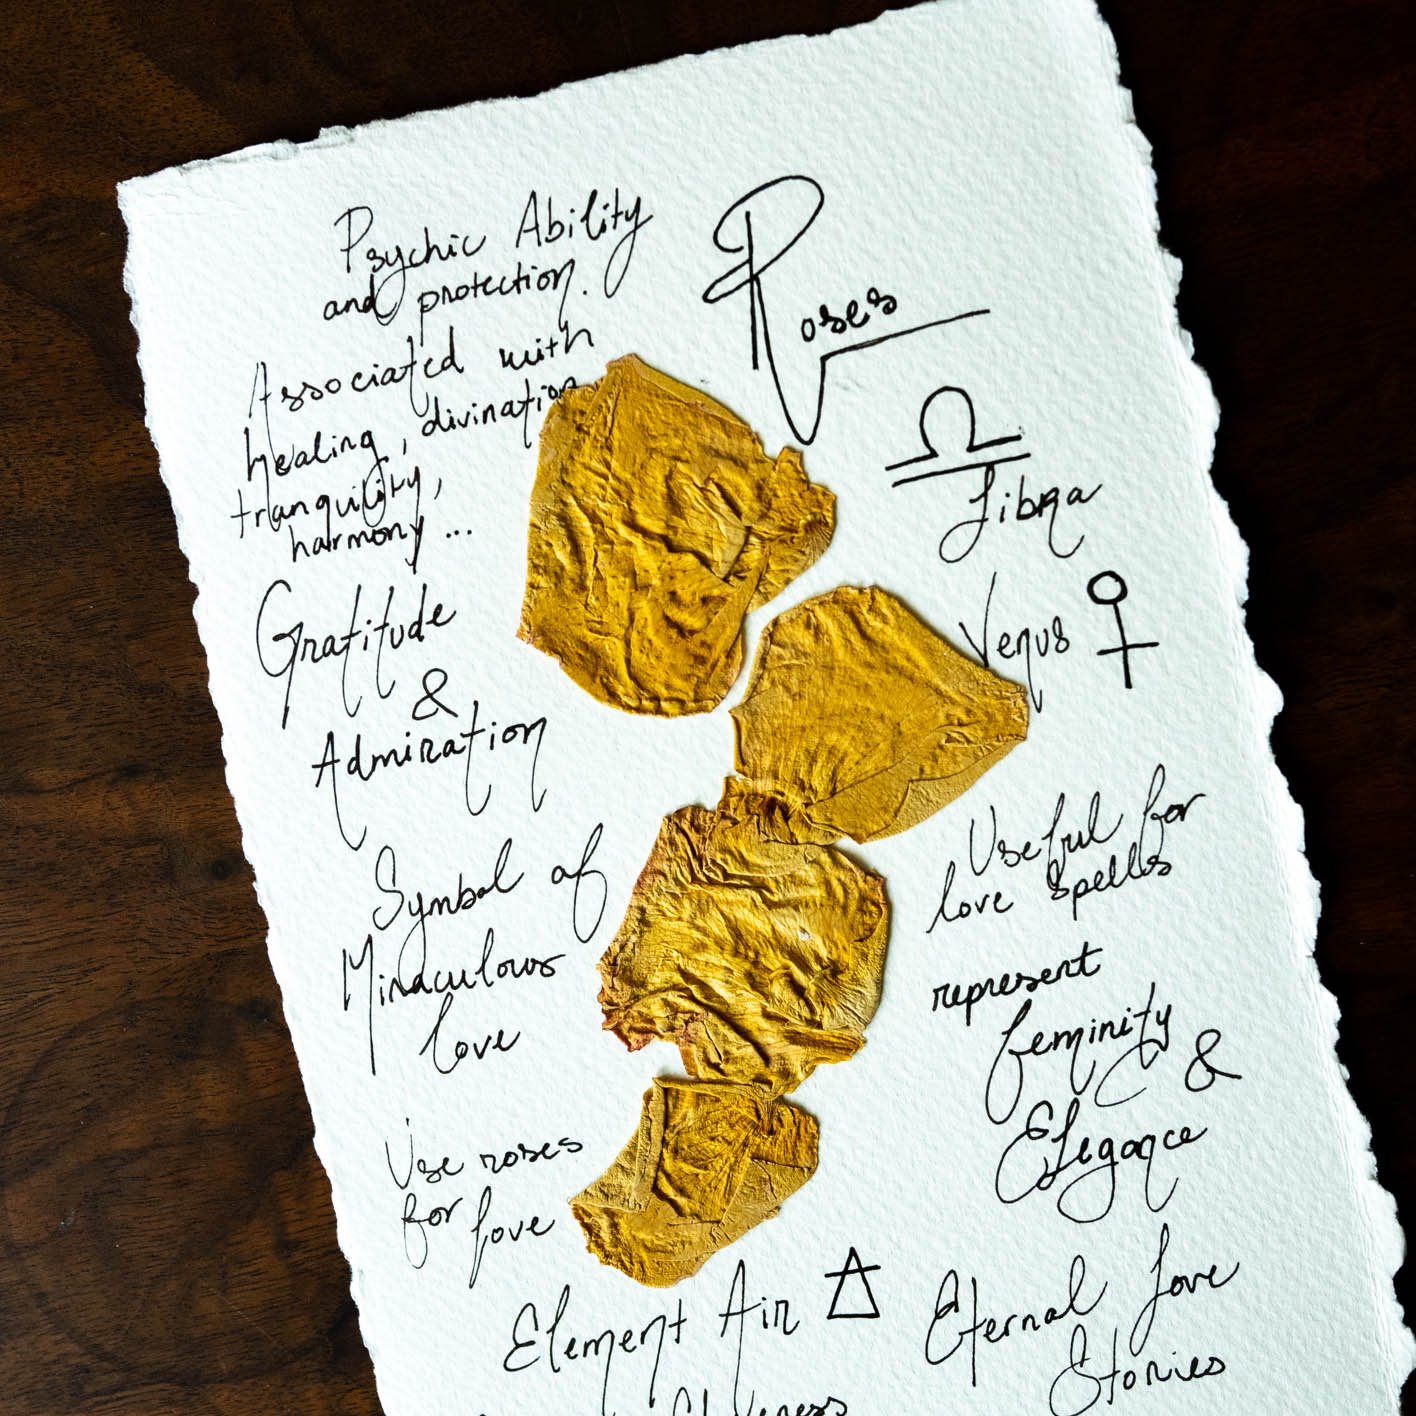 Roses
Psychic Ability
and protection.
Associated with
healing, divination
tranquility,
harmony ...
Gratitude
&
Admiration
Symbol of
Miraculous
love
Use roses
for love
♎
Libra
Venus ♀
Useful for
love spells
represent
feminity &
Elegance
Element Air 🜁
Eternal Love
Stories